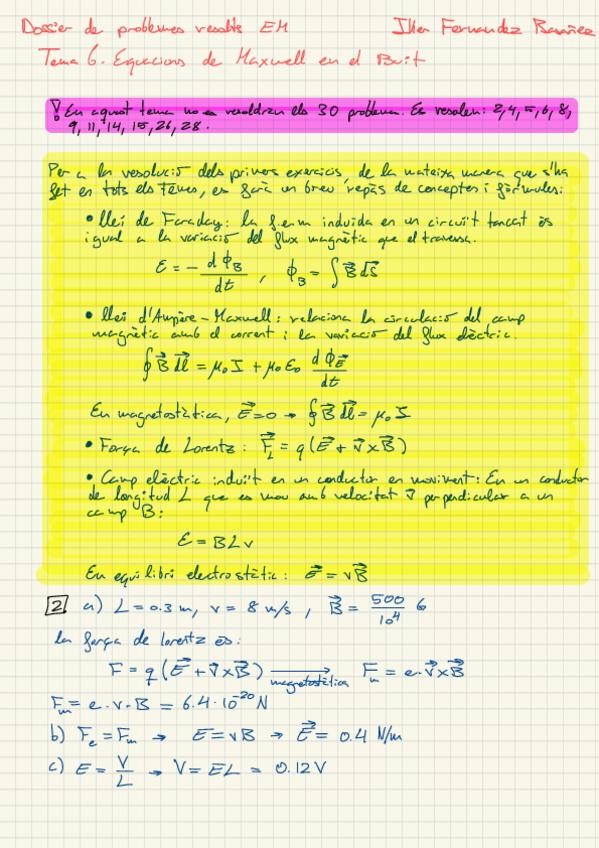 Dossier de problemes resolts EM Iker Fernandez
Tema 6. Equacions de Maxwell en el Buit
! En aquest tema no es resoldran els 30 problema. Es resolen: 2,4,5,6,8,
9, 11, 14, 15, 26, 28.
Per a la resolució dels primers exercicis, de la mateixa manera que s'ha
fet en tots els Temes, es farà un breu repàs de conceptes i fórmules:
• Llei de Faraday: la f.e.m induïda en un circuit tancat és
igual a la variació del flux magnètic que el traversa.
ε = - dΦ_B/dt , Φ_B = ∫ B⃗ dS⃗
• Llei d'Ampère-Maxwell: relaciona la circulació del camp
magnètic amb el corrent i la variació del flux elèctric.
∮ B⃗ dl⃗ = μ₀ I + μ₀ ε₀ dΦ_E⃗/dt
En magnetostàtica, E⃗=0 → ∮ B⃗ dl⃗ = μ₀ I
• Força de Lorentz: F⃗_L = q(E⃗ + v⃗ x B⃗)
• Camp elèctric induït en un conductor en moviment: En un conductor
de longitud L que es mou amb velocitat v⃗ perpendicular a un
camp B:
ε = BLv
En equilibri electrostàtic: E⃗ = vB⃗
2 a) L = 0.3 m, v = 8 m/s , B⃗ = 500/10⁴ G
La força de lorentz és:
F = q(E⃗ + v⃗ x B⃗) → magnetostàtica F_m = e·v⃗ x B⃗
F_m = e·v·B = 6.4·10⁻²⁰ N
b) F_e = F_m → E = vB → E⃗ = 0.4 N/m
c) E = V/L → V = EL = 0.12 V